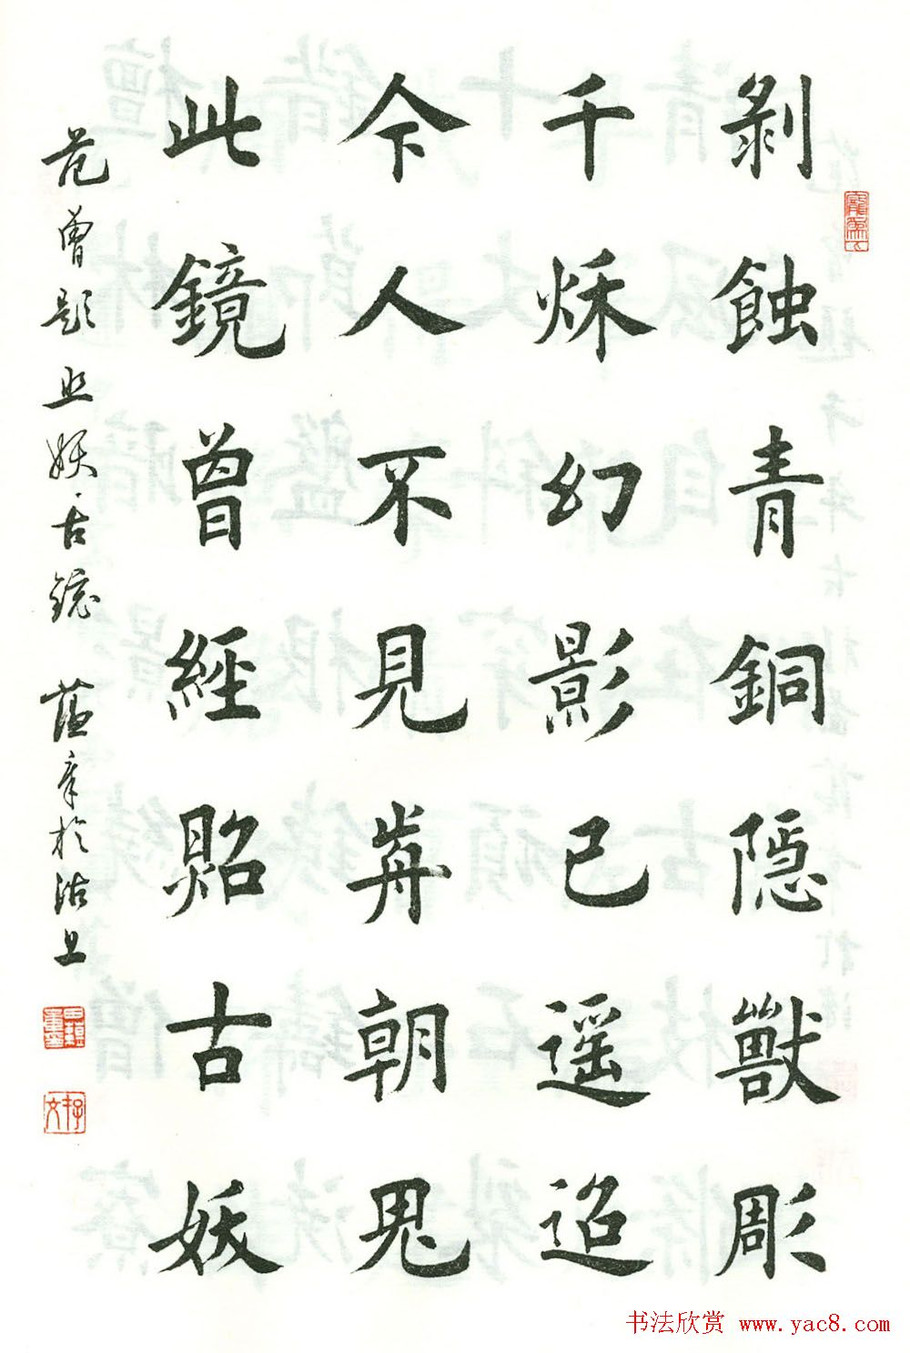 剝蝕青銅隠獸彫
千秌幻影已遥迢
今人不見歬朝鬼
此鏡曾經照古妖
范曾題照妖古鏡 蘊章於沽上
书法欣赏 www.yac8.com